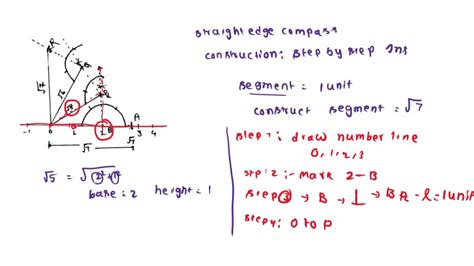 straight edge compass
construction: step by step Ins
segment = 1 unit
construct segment = √7
step 1: draw number line
0, 1, 2, 3
step 2 :- mark 2 - B
step 3 → B → ⊥ → BR - l = 1 unit
step 4: 0 to P
√7
√6
√5
B
A
-1 0 1 2 3 4
√5
√7
√5 = √2² + 1²
base = 2 height = 1